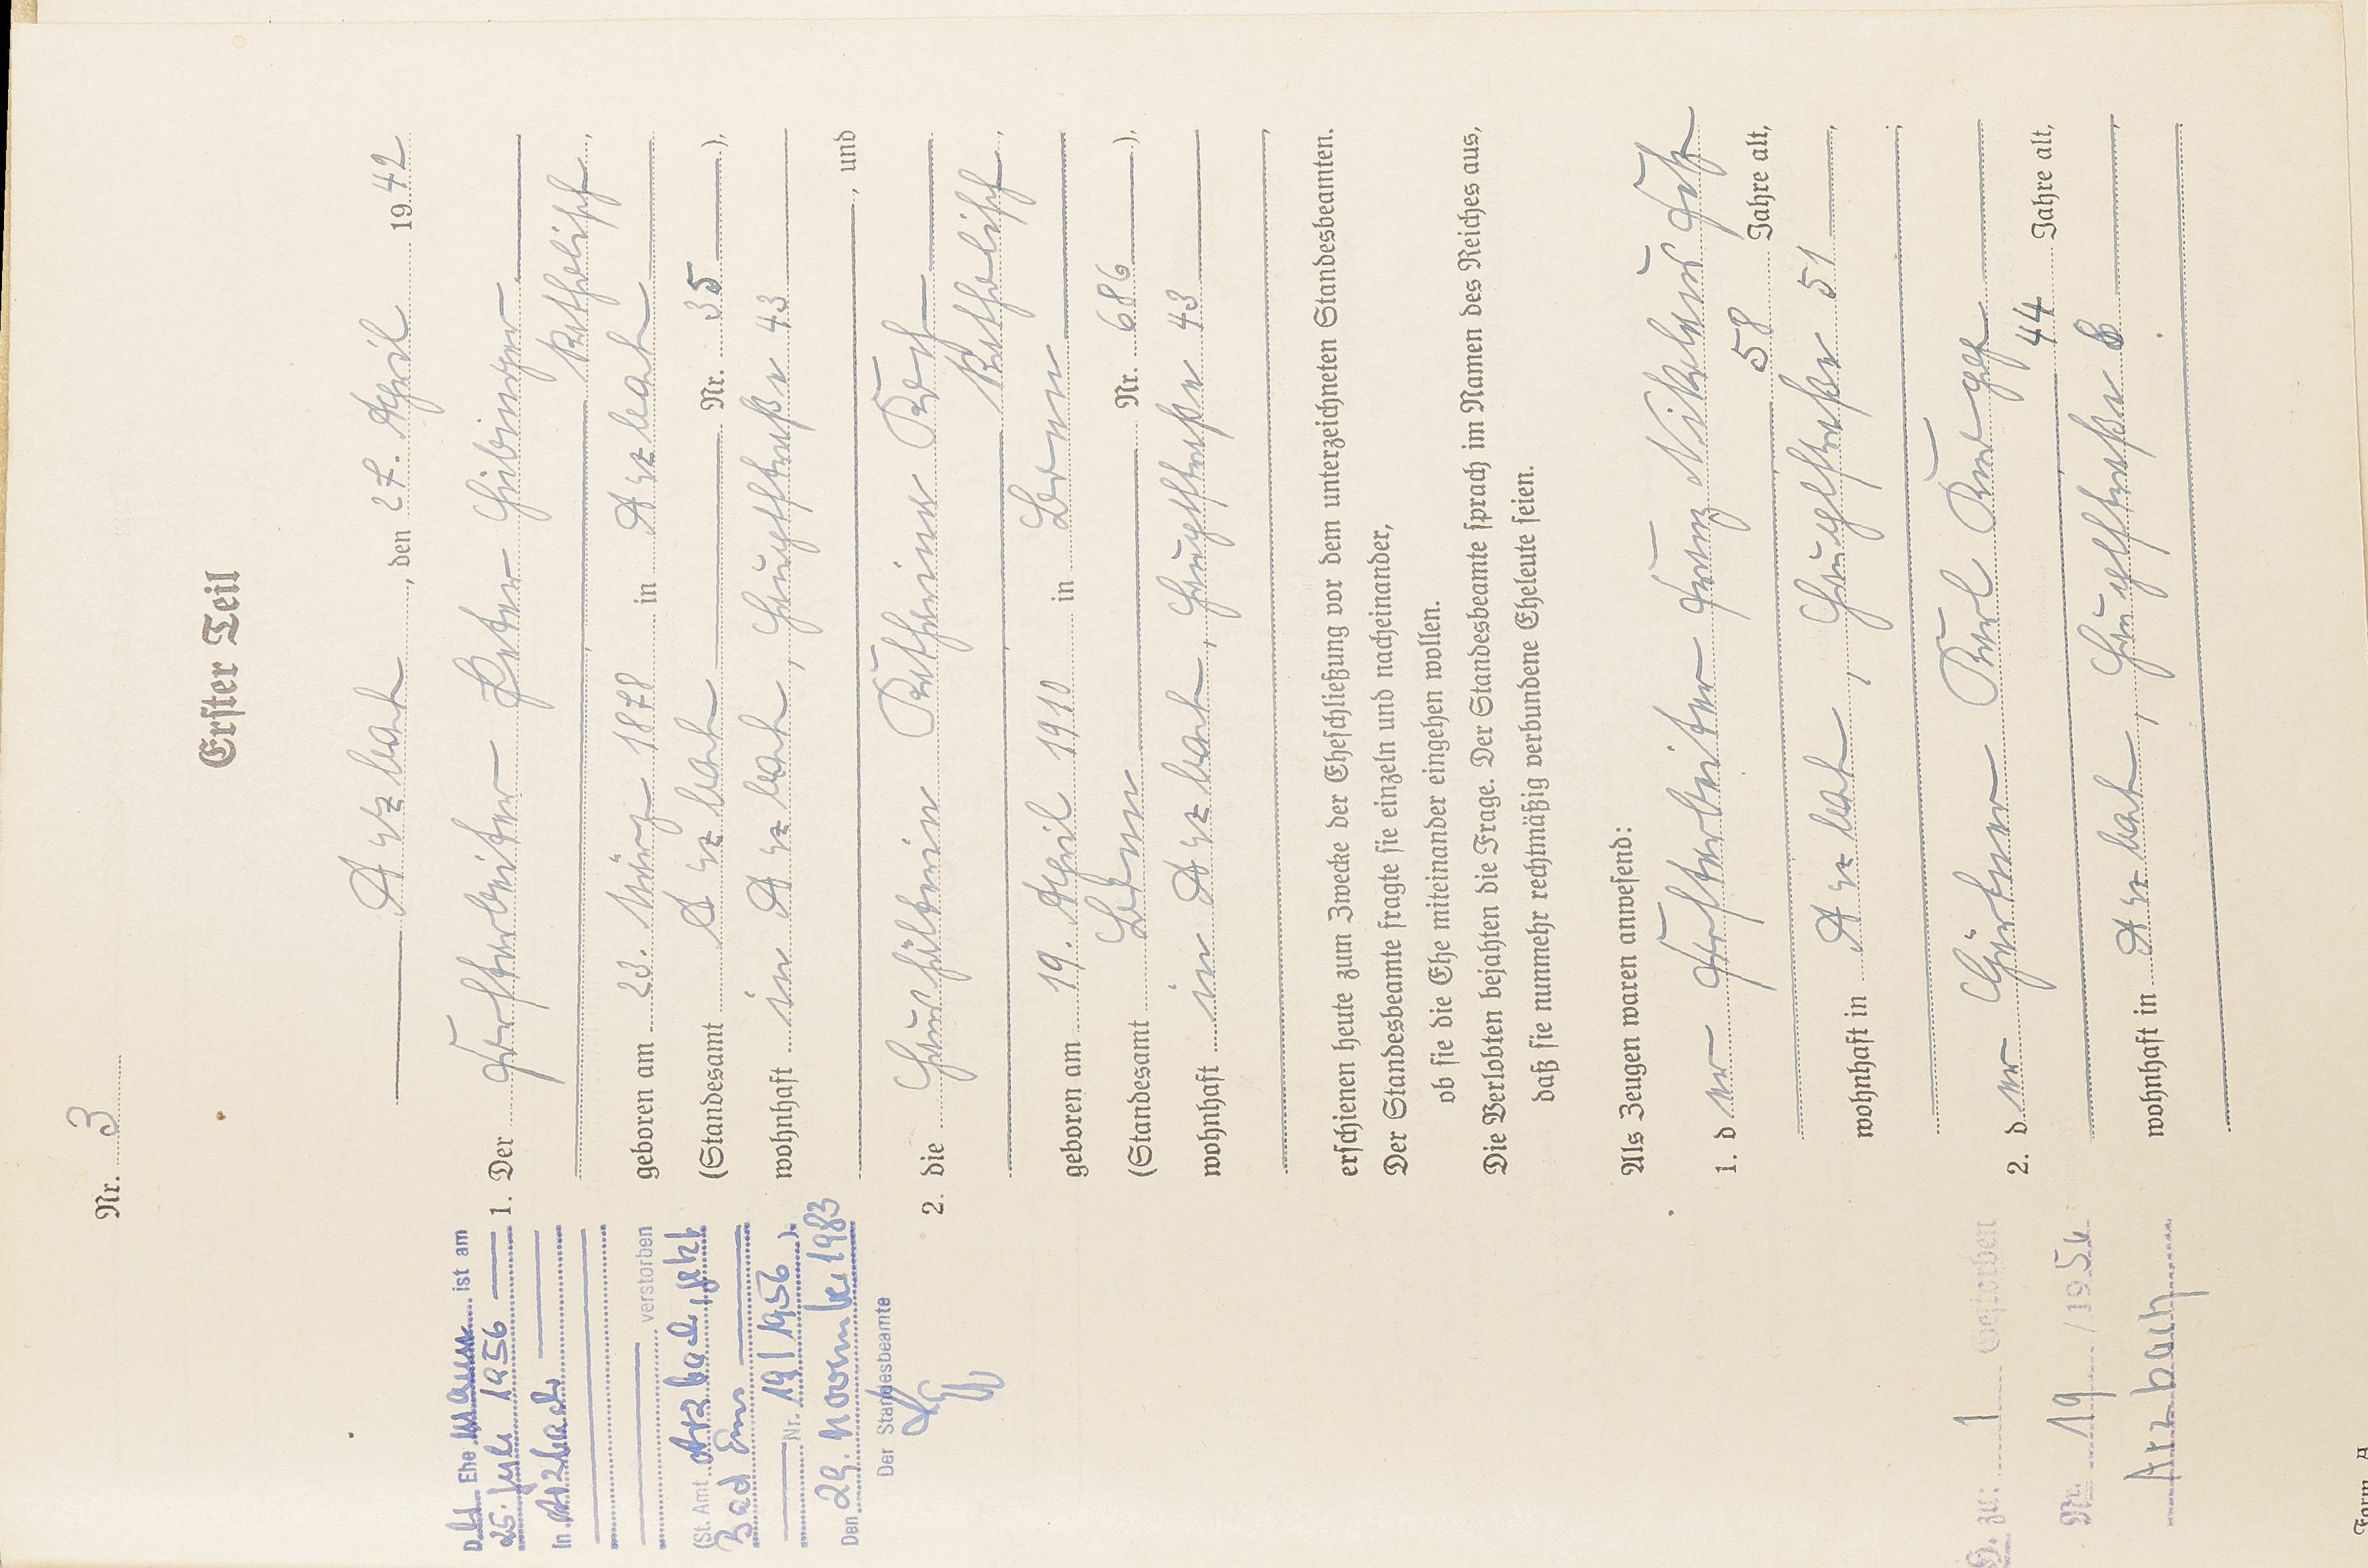 Nr. 3
Erster Teil
Arzbach, den 27. April 1942
1. Der Forstarbeiter Peter Heibinger
katholisch,
geboren am 23. März 1878 in Arzbach
(Standesamt Arzbach Nr. 35),
wohnhaft in Arzbach, Hauptstraße 43
, und
2. die Haushälterin Katharina Koch
katholisch,
geboren am 19. April 1910 in Bonn
(Standesamt Bonn Nr. 686),
wohnhaft in Arzbach, Hauptstraße 43
,
erschienen heute zum Zwecke der Eheschließung vor dem unterzeichneten Standesbeamten.
Der Standesbeamte fragte sie einzeln und nacheinander,
ob sie die Ehe miteinander eingehen wollen.
Die Verlobten bejahten die Frage. Der Standesbeamte sprach im Namen des Reiches aus,
daß sie nunmehr rechtmäßig verbundene Eheleute seien.
Als Zeugen waren anwesend:
1. der Forstarbeiter Franz Nikolaus
58 Jahre alt,
wohnhaft in Arzbach, Hauptstraße 51,
,
2. der Gärtner Karl
44 Jahre alt,
wohnhaft in Arzbach, Hauptstraße 6,
Der Ehemann ist am
25. Juli 1956
In Arzbach
verstorben
(St. Amt Arzbach, jetzt
Bad Ems
Nr. 19/1956).
Den 29. November 1983
Der Standesbeamte
H. zu: 1 Gestorben
Nr. 19 /1956
Arzbach
Form. A